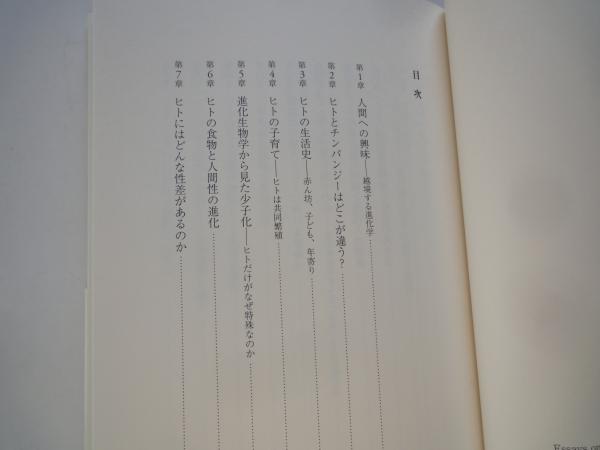 目次
第1章 人間への興味——越境する進化学
第2章 ヒトとチンパンジーはどこが違う？
第3章 ヒトの生活史——赤ん坊、子ども、年寄り
第4章 ヒトの子育て——ヒトは共同繁殖
第5章 進化生物学から見た少子化——ヒトだけがなぜ特殊なのか
第6章 ヒトの食物と人間性の進化
第7章 ヒトにはどんな性差があるのか
Essays on